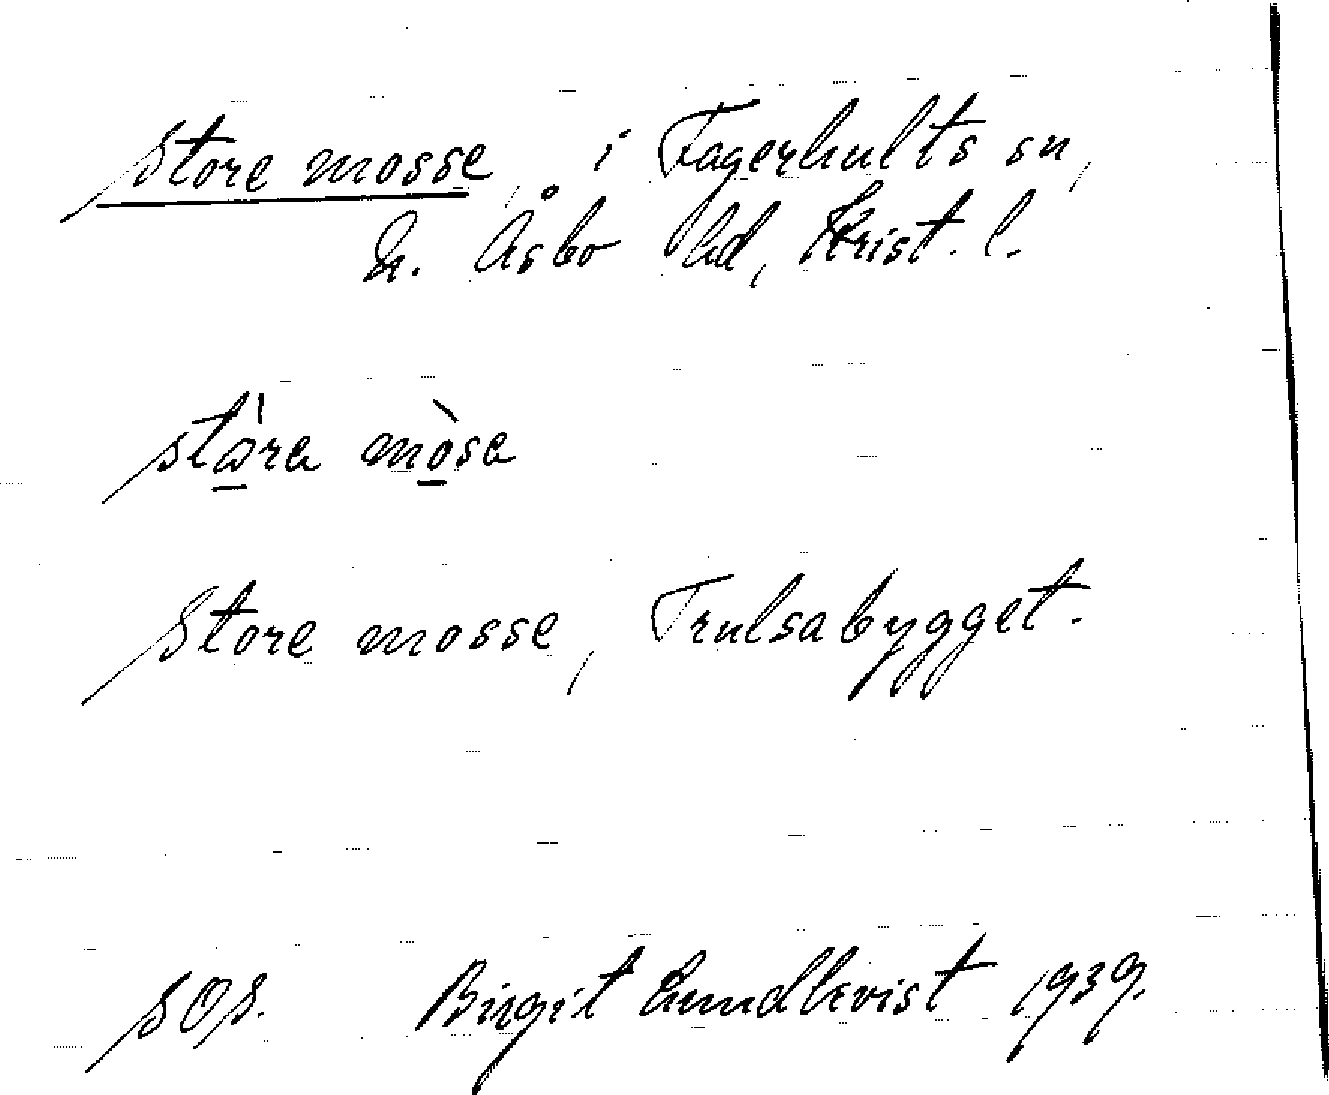 Store mosse, i Fagerhults sn,
N. Åsbo hd, Krist. l.
Store mosse, Trulsabygget.
Birgit Lundkvist 1939.